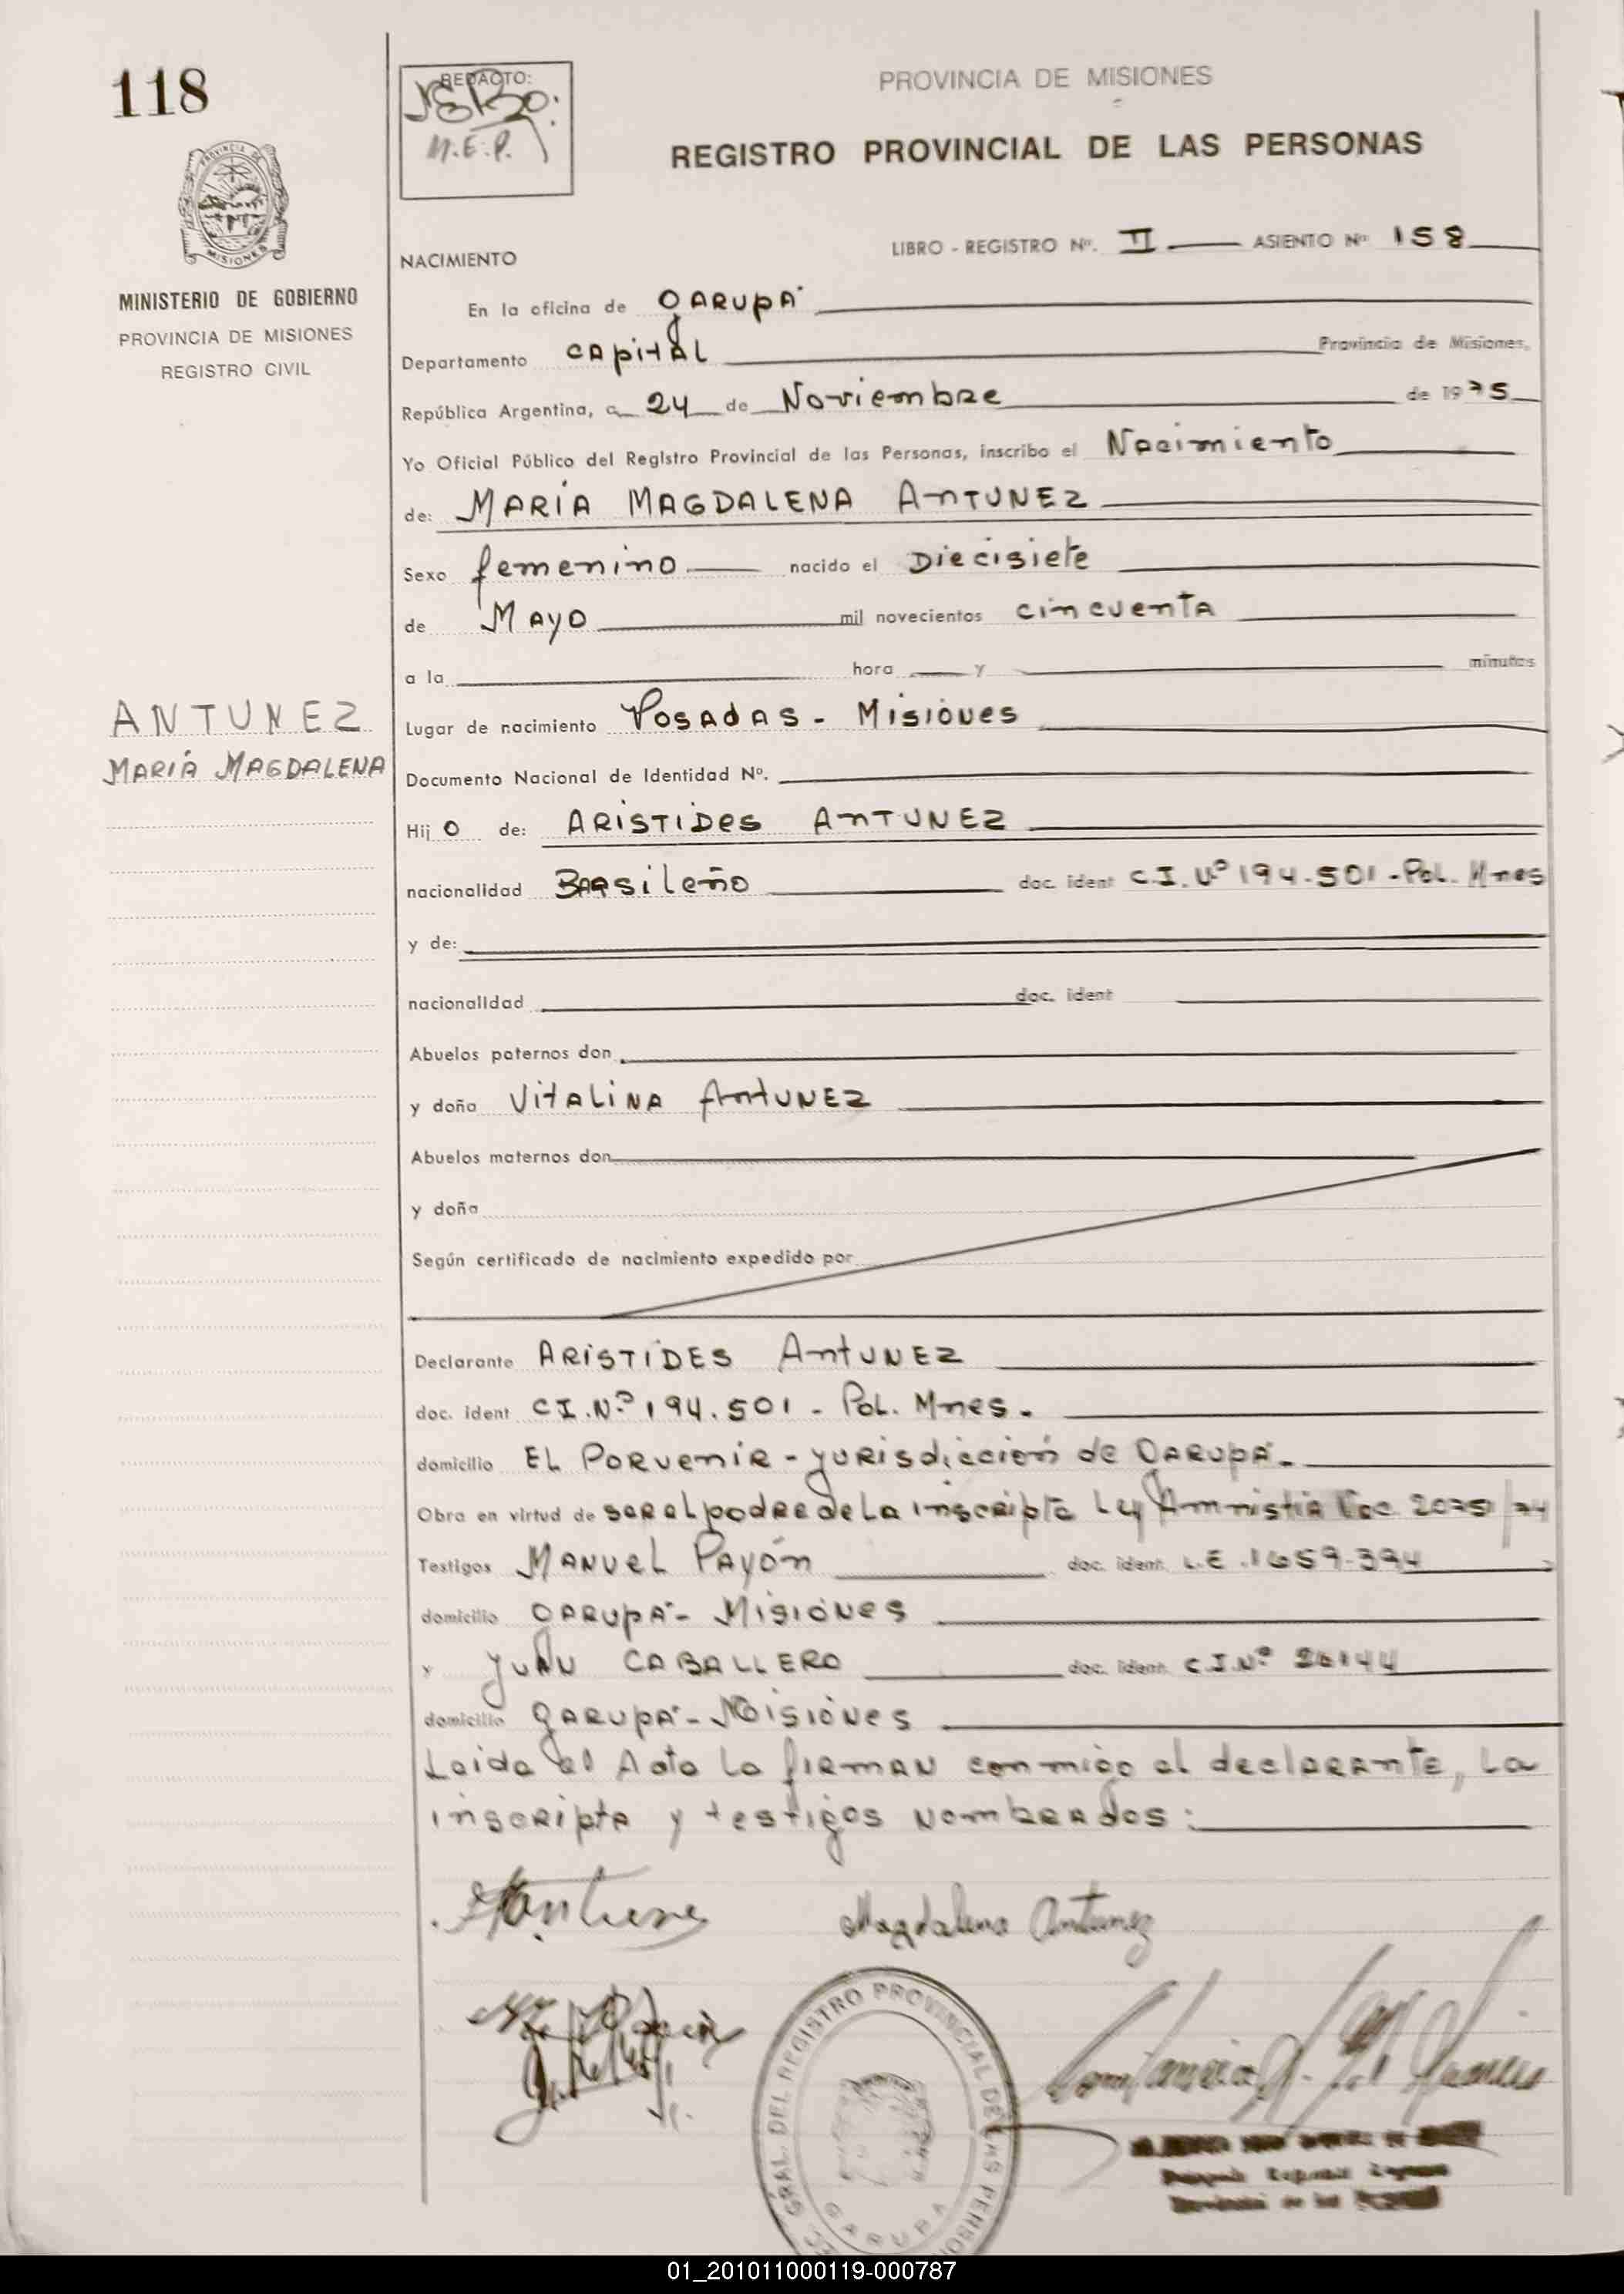 118
REDACTO:
M.E.P.
PROVINCIA DE MISIONES
REGISTRO PROVINCIAL DE LAS PERSONAS
PROVINCIA DE
MISIONES
MINISTERIO DE GOBIERNO
PROVINCIA DE MISIONES
REGISTRO CIVIL
LIBRO - REGISTRO Nº. II ASIENTO Nº 158
NACIMIENTO
En la oficina de GARUPÁ
Departamento CAPITAL Provincia de Misiones,
República Argentina, a 24 de Noviembre de 1975
Yo Oficial Público del Registro Provincial de las Personas, inscribo el Nacimiento
de: MARÍA MAGDALENA ANTUNEZ
Sexo femenino nacido el Diecisiete
de MAYO mil novecientos cincuenta
a la hora y minutos
ANTUNEZ
MARÍA MAGDALENA
Lugar de nacimiento POSADAS - Misiones
Documento Nacional de Identidad Nº.
Hij O de: ARISTIDES ANTUNEZ
nacionalidad BRASileño doc. ident C.I. Nº 194.501 - Pol. Mnes
y de:
nacionalidad doc. ident
Abuelos paternos don
y doña VITALINA ANTUNEZ
Abuelos maternos don
y doña
Según certificado de nacimiento expedido por
Declarante ARISTIDES ANTUNEZ
doc. ident C.I. Nº 194.501 - Pol. Mnes.
domicilio EL PORVENIR - yurisdicción de GARUPÁ.
Obra en virtud de ser el padre de la inscripta Ley Amnistia 2075/74
Testigos MANUEL PAYÓN doc. ident. L.E. 1659.394
domicilio GARUPÁ - Misiones
y JUAN CABALLERO doc. ident. C.I. Nº 26144
domicilio GARUPÁ - Misiones
Leida el Acta la firman conmigo el declarante, la
inscripta y testigos nombrados:
Magdalena Antunez
GRAL. DEL REGISTRO PROVINCIAL DE LAS PERSON
GARUPA
01_201011000119-000787